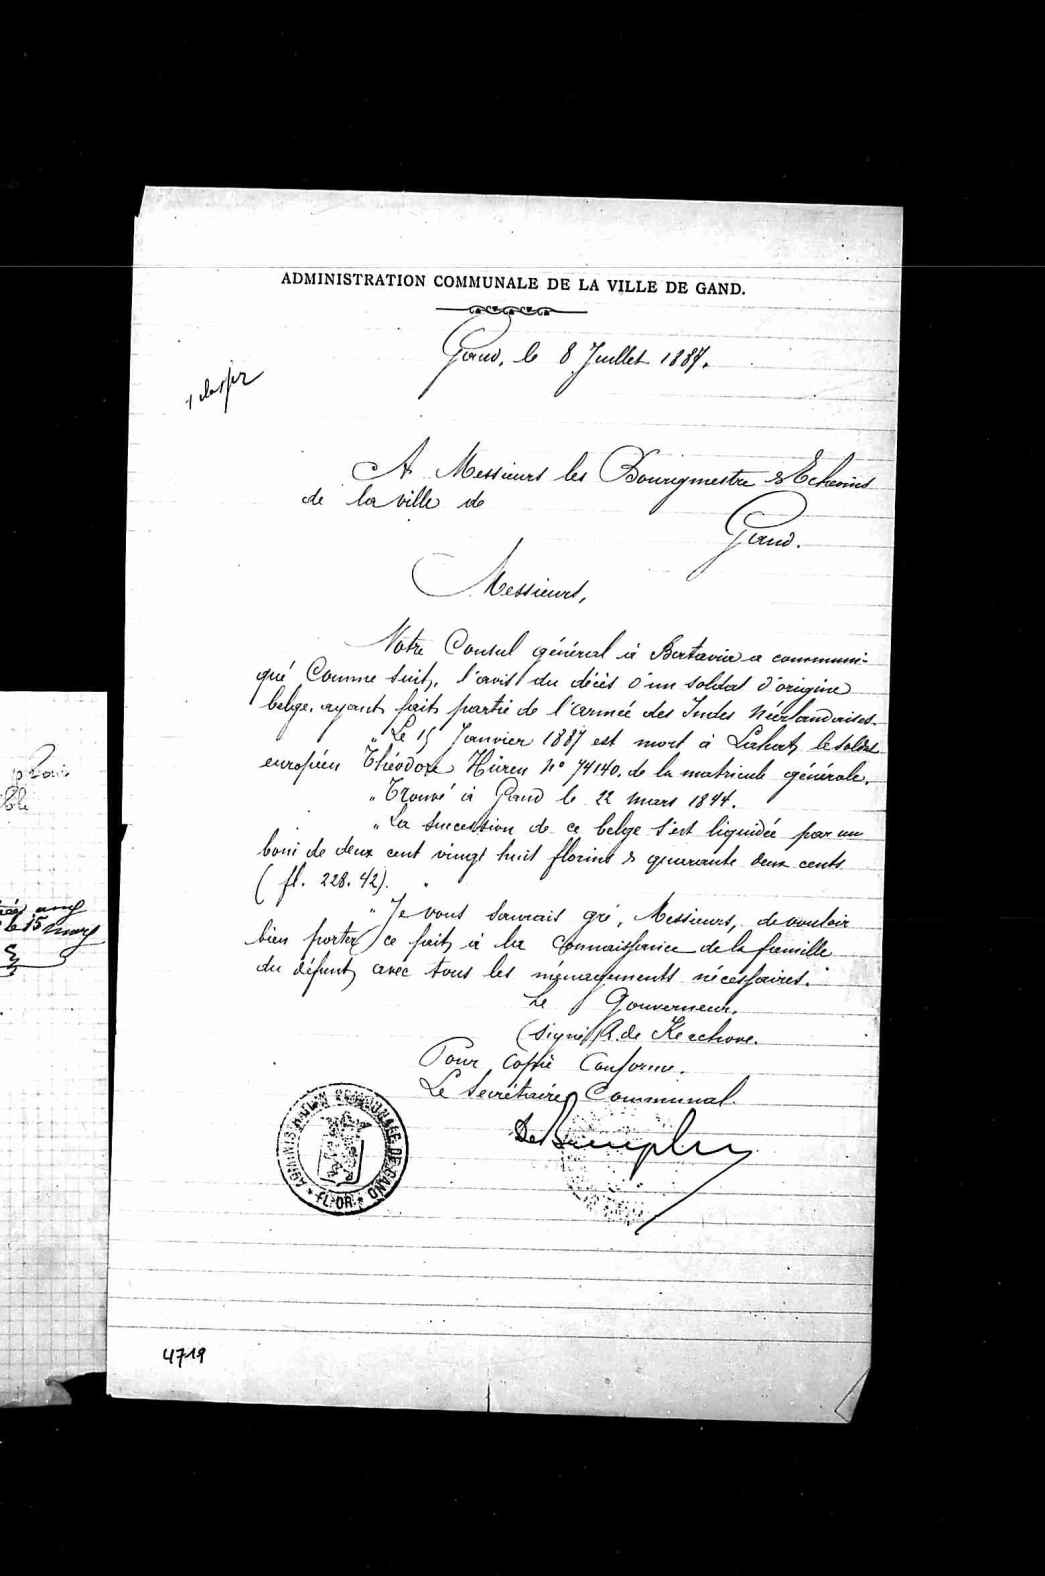 ADMINISTRATION COMMUNALE DE LA VILLE DE GAND.
Gand, le 8 Juillet 1887.
A Messieurs les Bourgmestre & Echevins
de la ville de
Gand.
Messieurs,
Notre Consul général à Batavia a communi-
qué comme suit, l'avis du décès d'un soldat d'origine
belge, ayant fait partie de l'armée des Indes Néerlandaises.
"Le 15 Janvier 1887 est mort à Lahat, le soldat
européen Théodore Hüren No 74140. de la matricule générale.
"Trouvé à Gand le 22 mars 1844.
"La succession de ce belge s'est liquidée par un
boni de deux cent vingt huit florins & quarante deux cents
(fl. 228. 42).
"Je vous saurais gré, Messieurs, de vouloir
bien porter ce fait, à la connaissance de la famille
du défunt, avec tous les ménagements nécessaires."
Le Gouverneur,
(signé) R. de Kerchove.
Pour Copie Conforme.
Le Secrétaire Communal.
ADMINISTRATION COMMUNALE DE GAND
FL. OR.
4719
le 15 mars